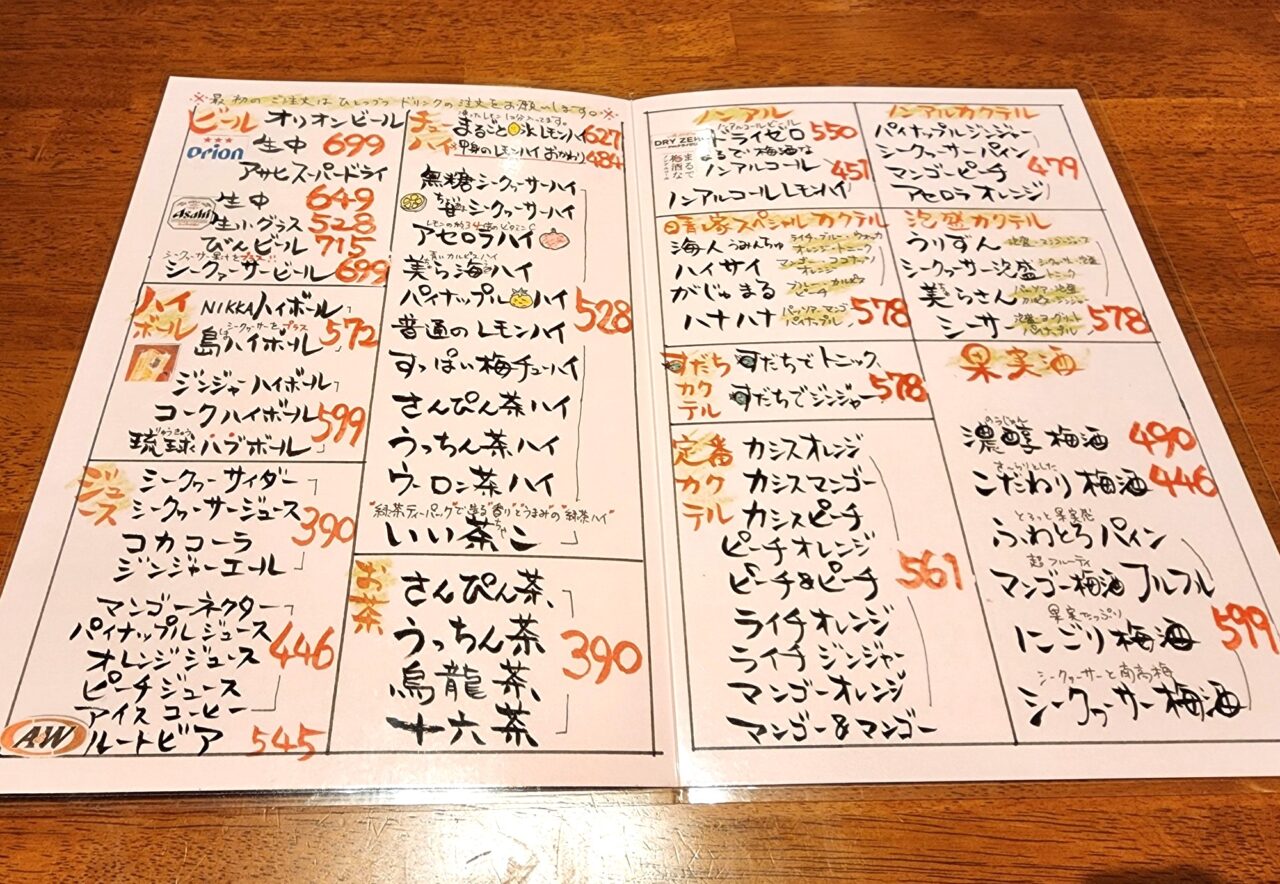 ※最初のご注文はひとつづつドリンクの注文をお願いします。※
ビール
オリオンビール
Orion
生中 699
アサヒスーパードライ
Asahi
生中 649
生小グラス 528
びんビール 715
シークァーサー果汁をプラス!!
シークァーサービール 699
ハイボール
NIKKAハイボール
シークヮーサーをプラス
島ハイボール
572
ジンジャハイボール
コークハイボール
りゅうきゅう
琉球ハブボール
599
ジュース
シークヮーサイダー
シークヮーサージュース
コカコーラ
ジンジャーエール
390
マンゴーネクター
パイナップルジュース
オレンジジュース
ピーチジュース
アイスコーヒー
446
A&W
ルートビア 545
チューハイ
まるごと氷レモンハイ 627
中身のレモンハイおかわり 484
無糖シークヮーサーハイ
シークヮーサーハイ
アセロラハイ
青いカルピスハイ
美ら海ハイ
パイナップルハイ
普通のレモンハイ
すっぱい梅チューハイ
さんぴん茶ハイ
うっちん茶ハイ
ウーロン茶ハイ
"緑茶ティーパックで生る"香り"と"うまみ"の"緑茶ハイ"
いい茶こ
528
お茶
さんぴん茶
うっちん茶
烏龍茶
十六茶
390
ノンアル
ノンアルコールビール
DRY ZERO
ドライゼロ 550
まるで梅酒な
ノンアルコール
ノンアルコールレモンハイ
451
ノンアルカクテル
パイナップルジンジャー
シークヮーサーパイン
マンゴーピーチ
アセロラオレンジ
479
スペシャルカクテル
海人 うみんちゅ
ハイサイ
マンゴー・ココナッツ
オレンジ
がじゅまる
ピーチ
ハナハナ
パッソア・マンゴ
パイナップル
578
泡盛カクテル
うりずん
シークヮーサー泡盛
トニック
美らさん
シーサー
泡盛・ヨーグルト
パイナップル
578
すだちカクテル
すだちでトニック
すだちでジンジャー
578
定番カクテル
カシスオレンジ
カシスマンゴー
カシスピーチ
ピーチオレンジ
ピーチ&ピーチ
ライチオレンジ
ライチジンジャー
マンゴーオレンジ
マンゴー&マンゴー
561
果実酒
のうじゅん
濃醇梅酒 490
さっぱりとした
こだわり梅酒 446
とろっと果実感
ふわとろパイン
超フルーティ
マンゴー梅酒フルフル
果実たっぷり
にごり梅酒
シークヮーサーと南高梅
シークヮーサー梅酒
599